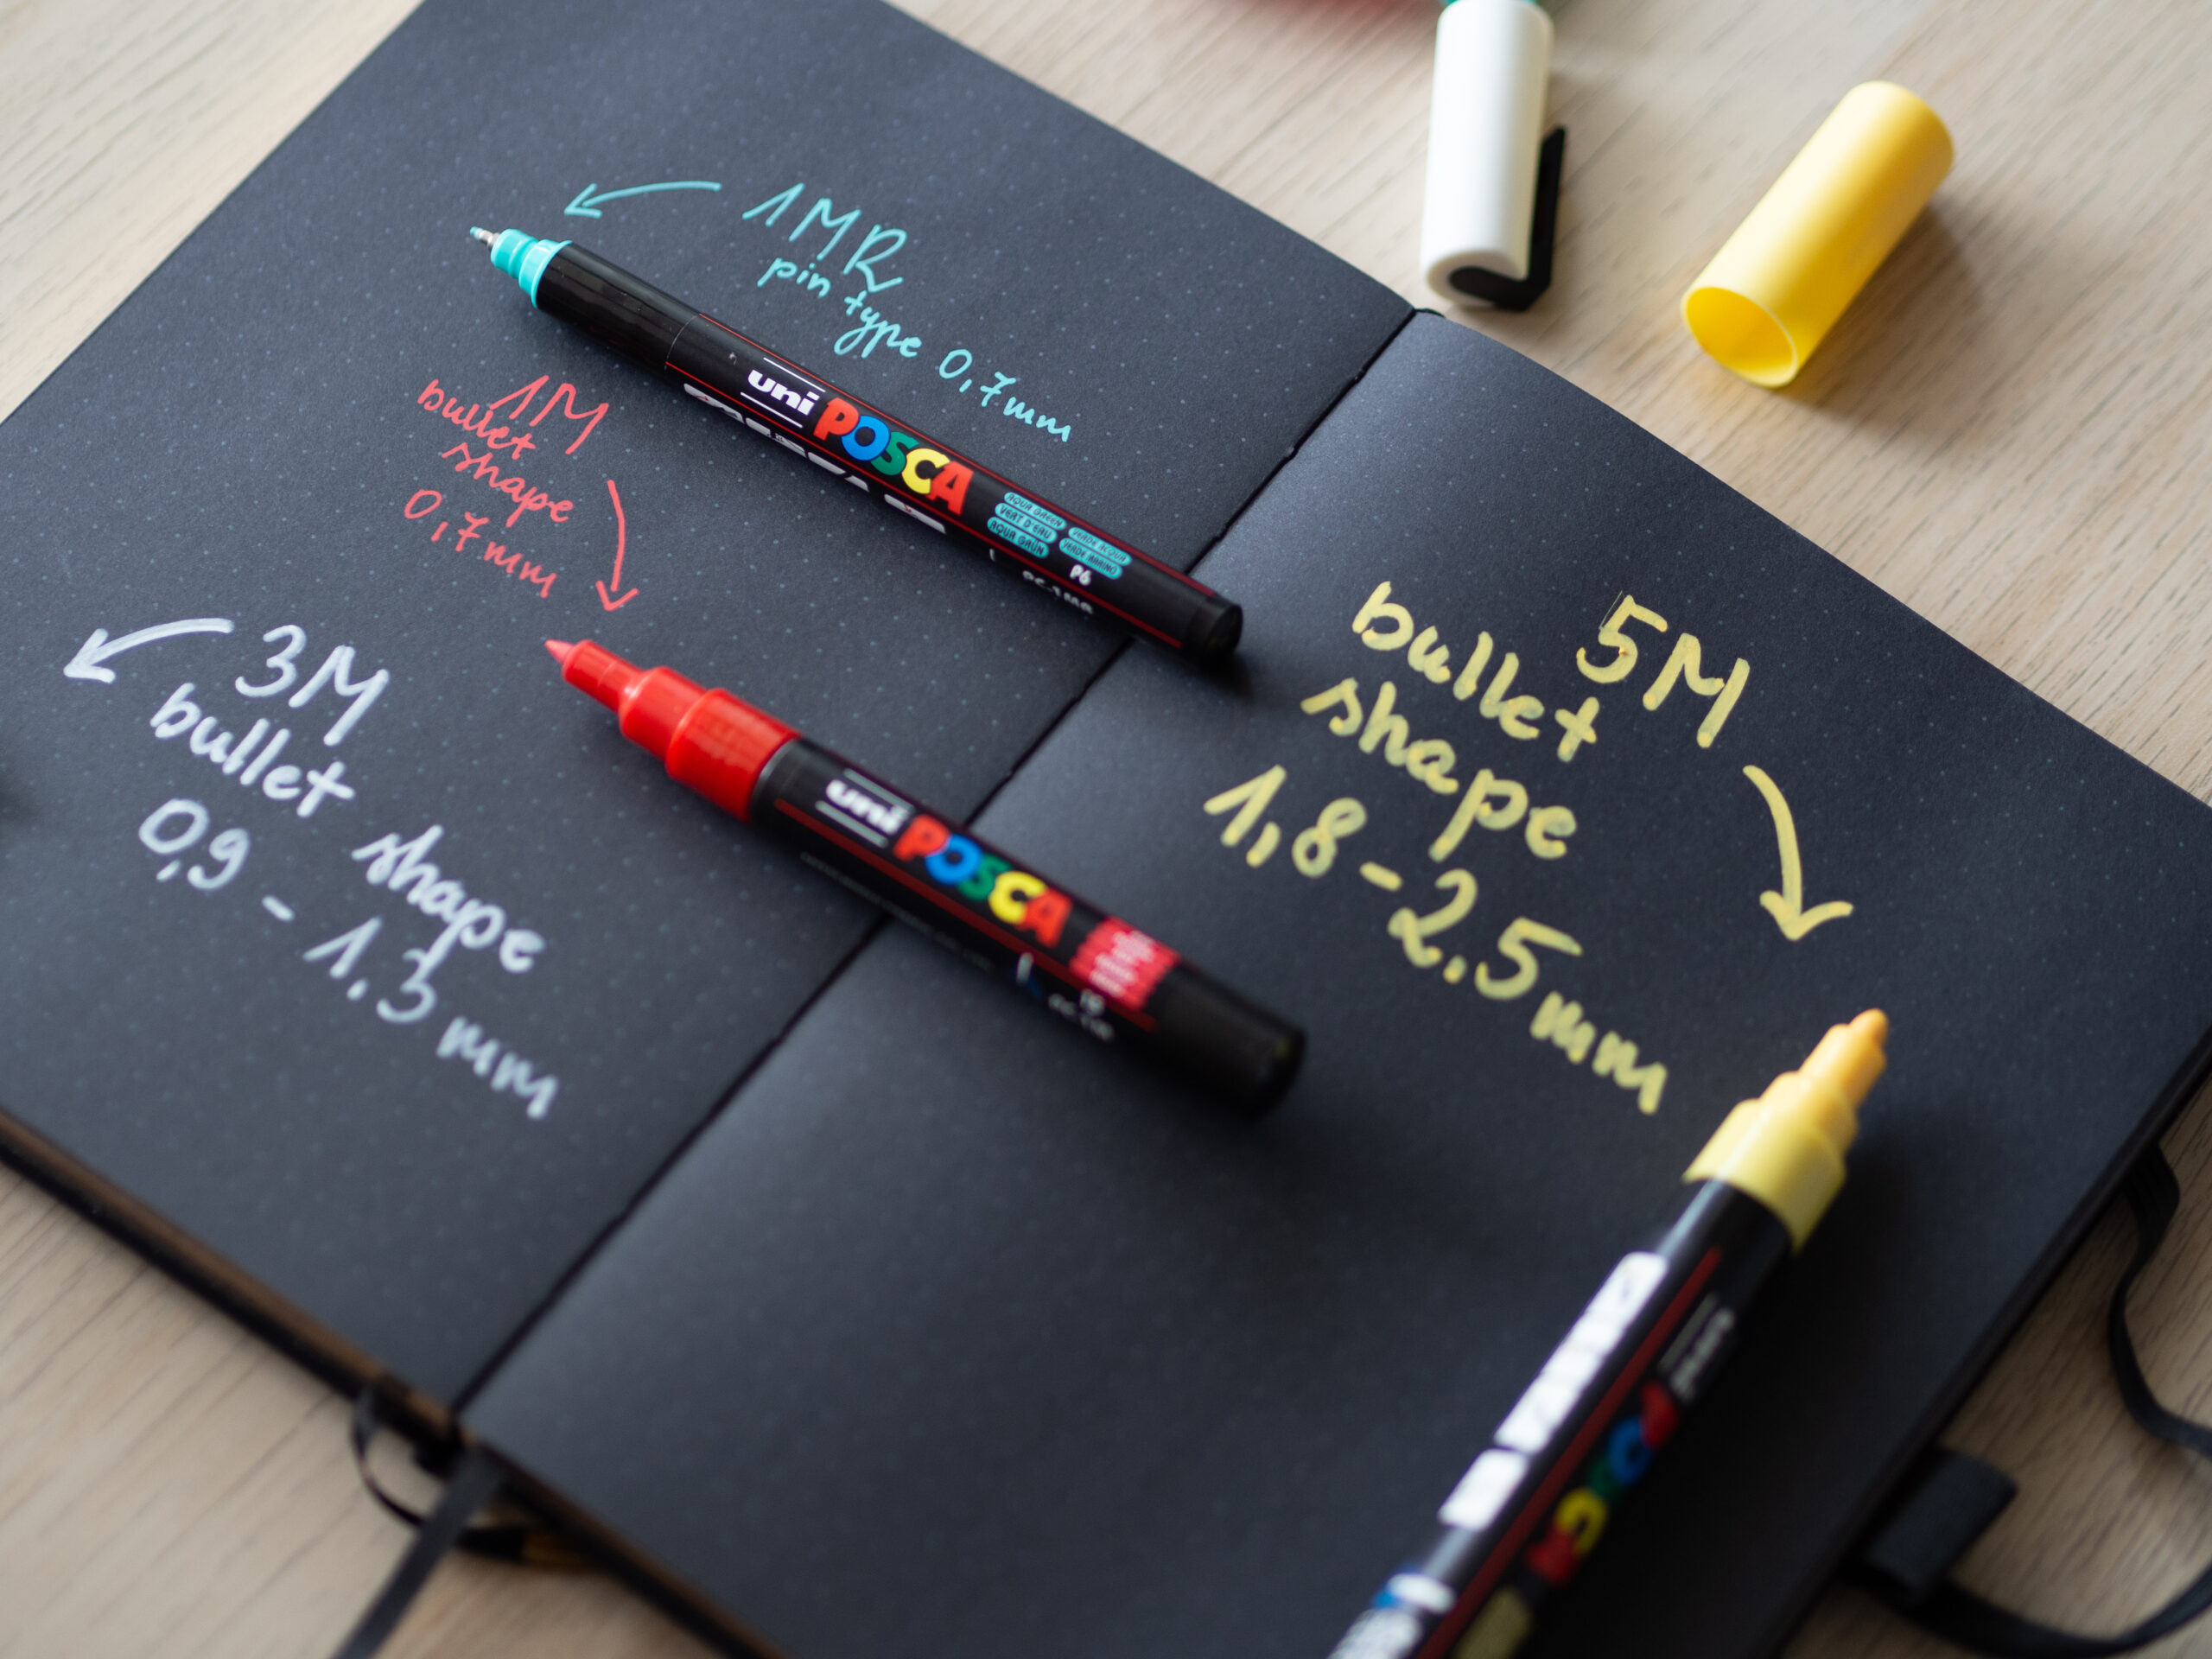 1MR
pin type 0,7mm
uni POSCA
AQUA GREEN
VERT D'EAU
AQUA GRÜN
VERDE ACQUA
VERDE MARINO
P6
PC-1MR
1M
bullet
shape
0,7mm
uni POSCA
3M
bullet shape
0,9 - 1.3 mm
5M
bullet
shape
1,8-2.5mm
POSCA